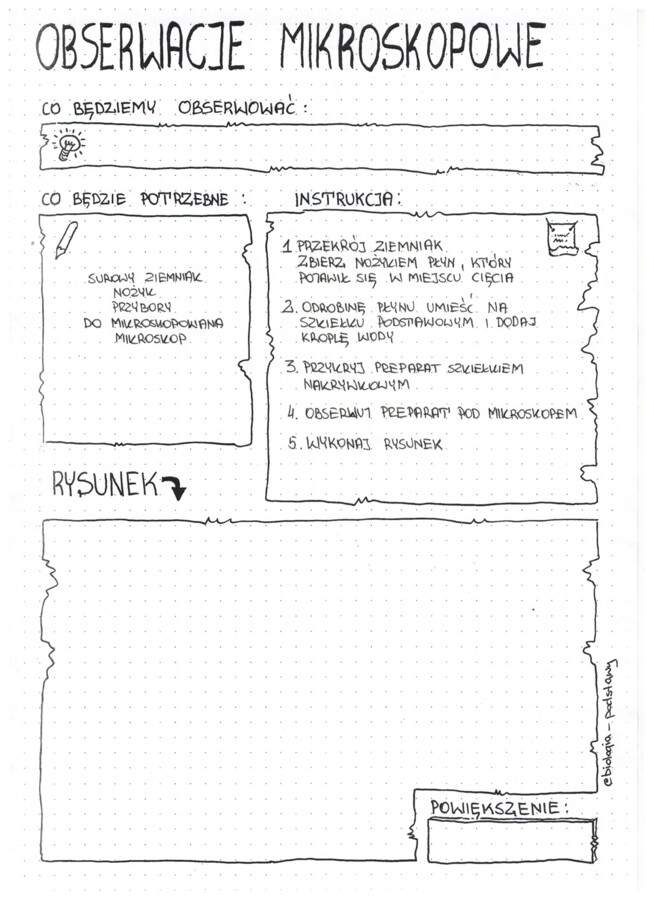 OBSERWACJE MIKROSKOPOWE
CO BĘDZIEMY OBSERWOWAĆ:
CO BĘDZIE POTRZEBNE:
SUROWY ZIEMNIAK
NOŻYK
PRZYBORY
DO MIKROSKOPOWANA
MIKROSKOP
INSTRUKCJA:
1 PRZEKRÓJ ZIEMNIAK
ZBIERZ NOŻYKIEM PŁYN, KTÓRY
POJAWIŁ SIĘ W MIEJSCU CIĘCIA
2. ODROBINĘ PŁYNU UMIEŚĆ NA
SZKIEŁKU PODSTAWOWYM I DODAJ
KROPLĘ WODY
3. PRZYKRYJ PREPARAT SZKIEŁKIEM
NAKRYWKOWYM
4. OBSERWUJ PREPARAT POD MIKROSKOPEM
5. WYKONAJ RYSUNEK
RYSUNEK
@biologia-podstawy
POWIĘKSZENIE: